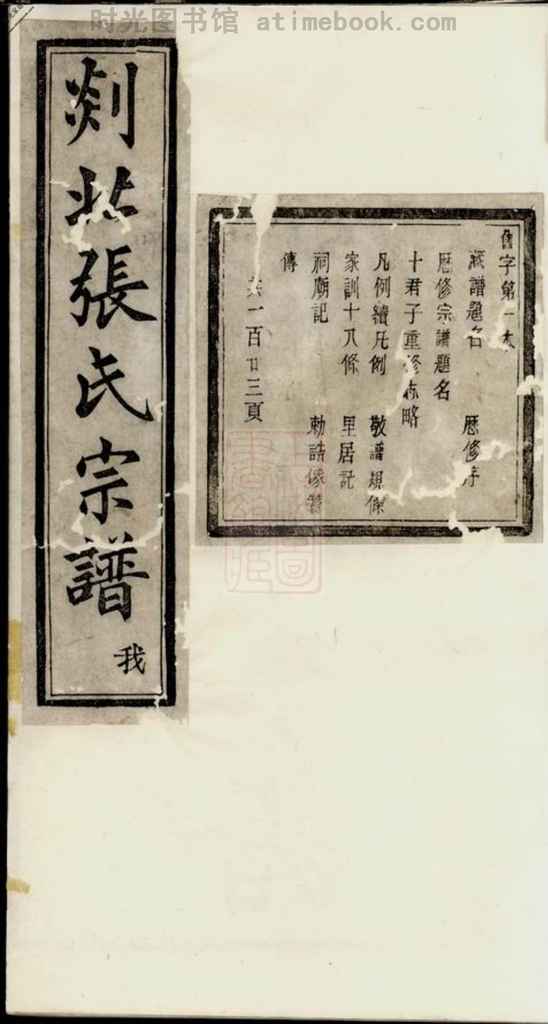 时光图书馆 atimebook.com
剡北張氏宗譜
我
字第一本
藏譜題名 歷修序
歷修宗譜題名
十君子重修 略
凡例續凡例 敬譜規條
家訓十八條 里居記
祠廟記 勅誥像贊
傳
共一百廿三頁